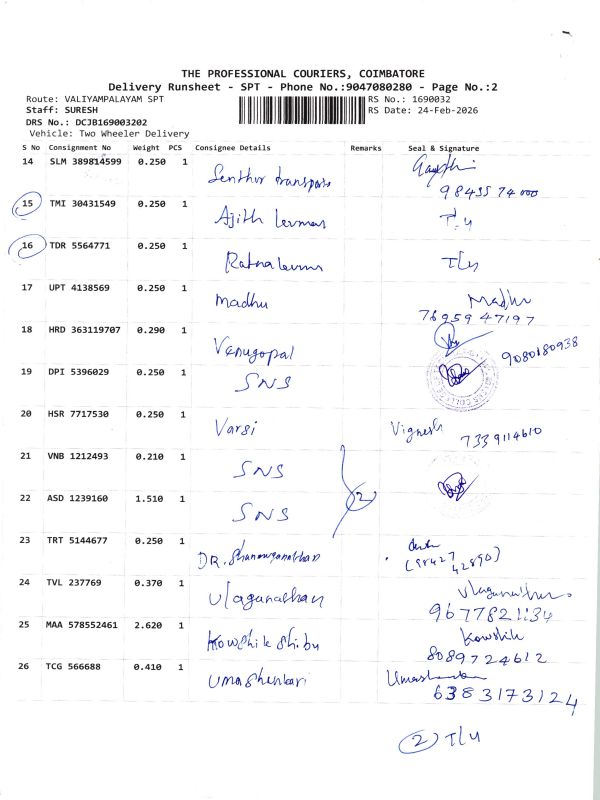 THE PROFESSIONAL COURIERS, COIMBATORE
Delivery Runsheet - SPT - Phone No.:9047080280 - Page No.:2
Route: VALIYAMPALAYAM SPT RS No.: 1690032
Staff: SURESH RS Date: 24-Feb-2026
DRS No.: DCJB169003202
Vehicle: Two Wheeler Delivery
S No Consignment No Weight PCS Consignee Details Remarks Seal & Signature
14 SLM 389814599 0.250 1 Senthur transports
98435 74000
15 TMI 30431549 0.250 1 Ajith T.4
16 TDR 5564771 0.250 1 T L4
17 UPT 4138569 0.250 1 Madhu Madhu
76959 47197
18 HRD 363119707 0.290 1 Venugopal 9080180938
19 DPI 5396029 0.250 1 SNS
20 HSR 7717530 0.250 1 Varsi Vignesh 7339114610
21 VNB 1212493 0.210 1 SNS
2
22 ASD 1239160 1.510 1 SNS
23 TRT 5144677 0.250 1 DR. Shanmuganathan (98427 42890)
24 TVL 237769 0.370 1 Ulaganathan
9677821134
25 MAA 578552461 2.620 1 Kowshik Shibu Kowshik
8089724612
26 TCG 566688 0.410 1 Uma Shenkari
6383173124
2 T L4